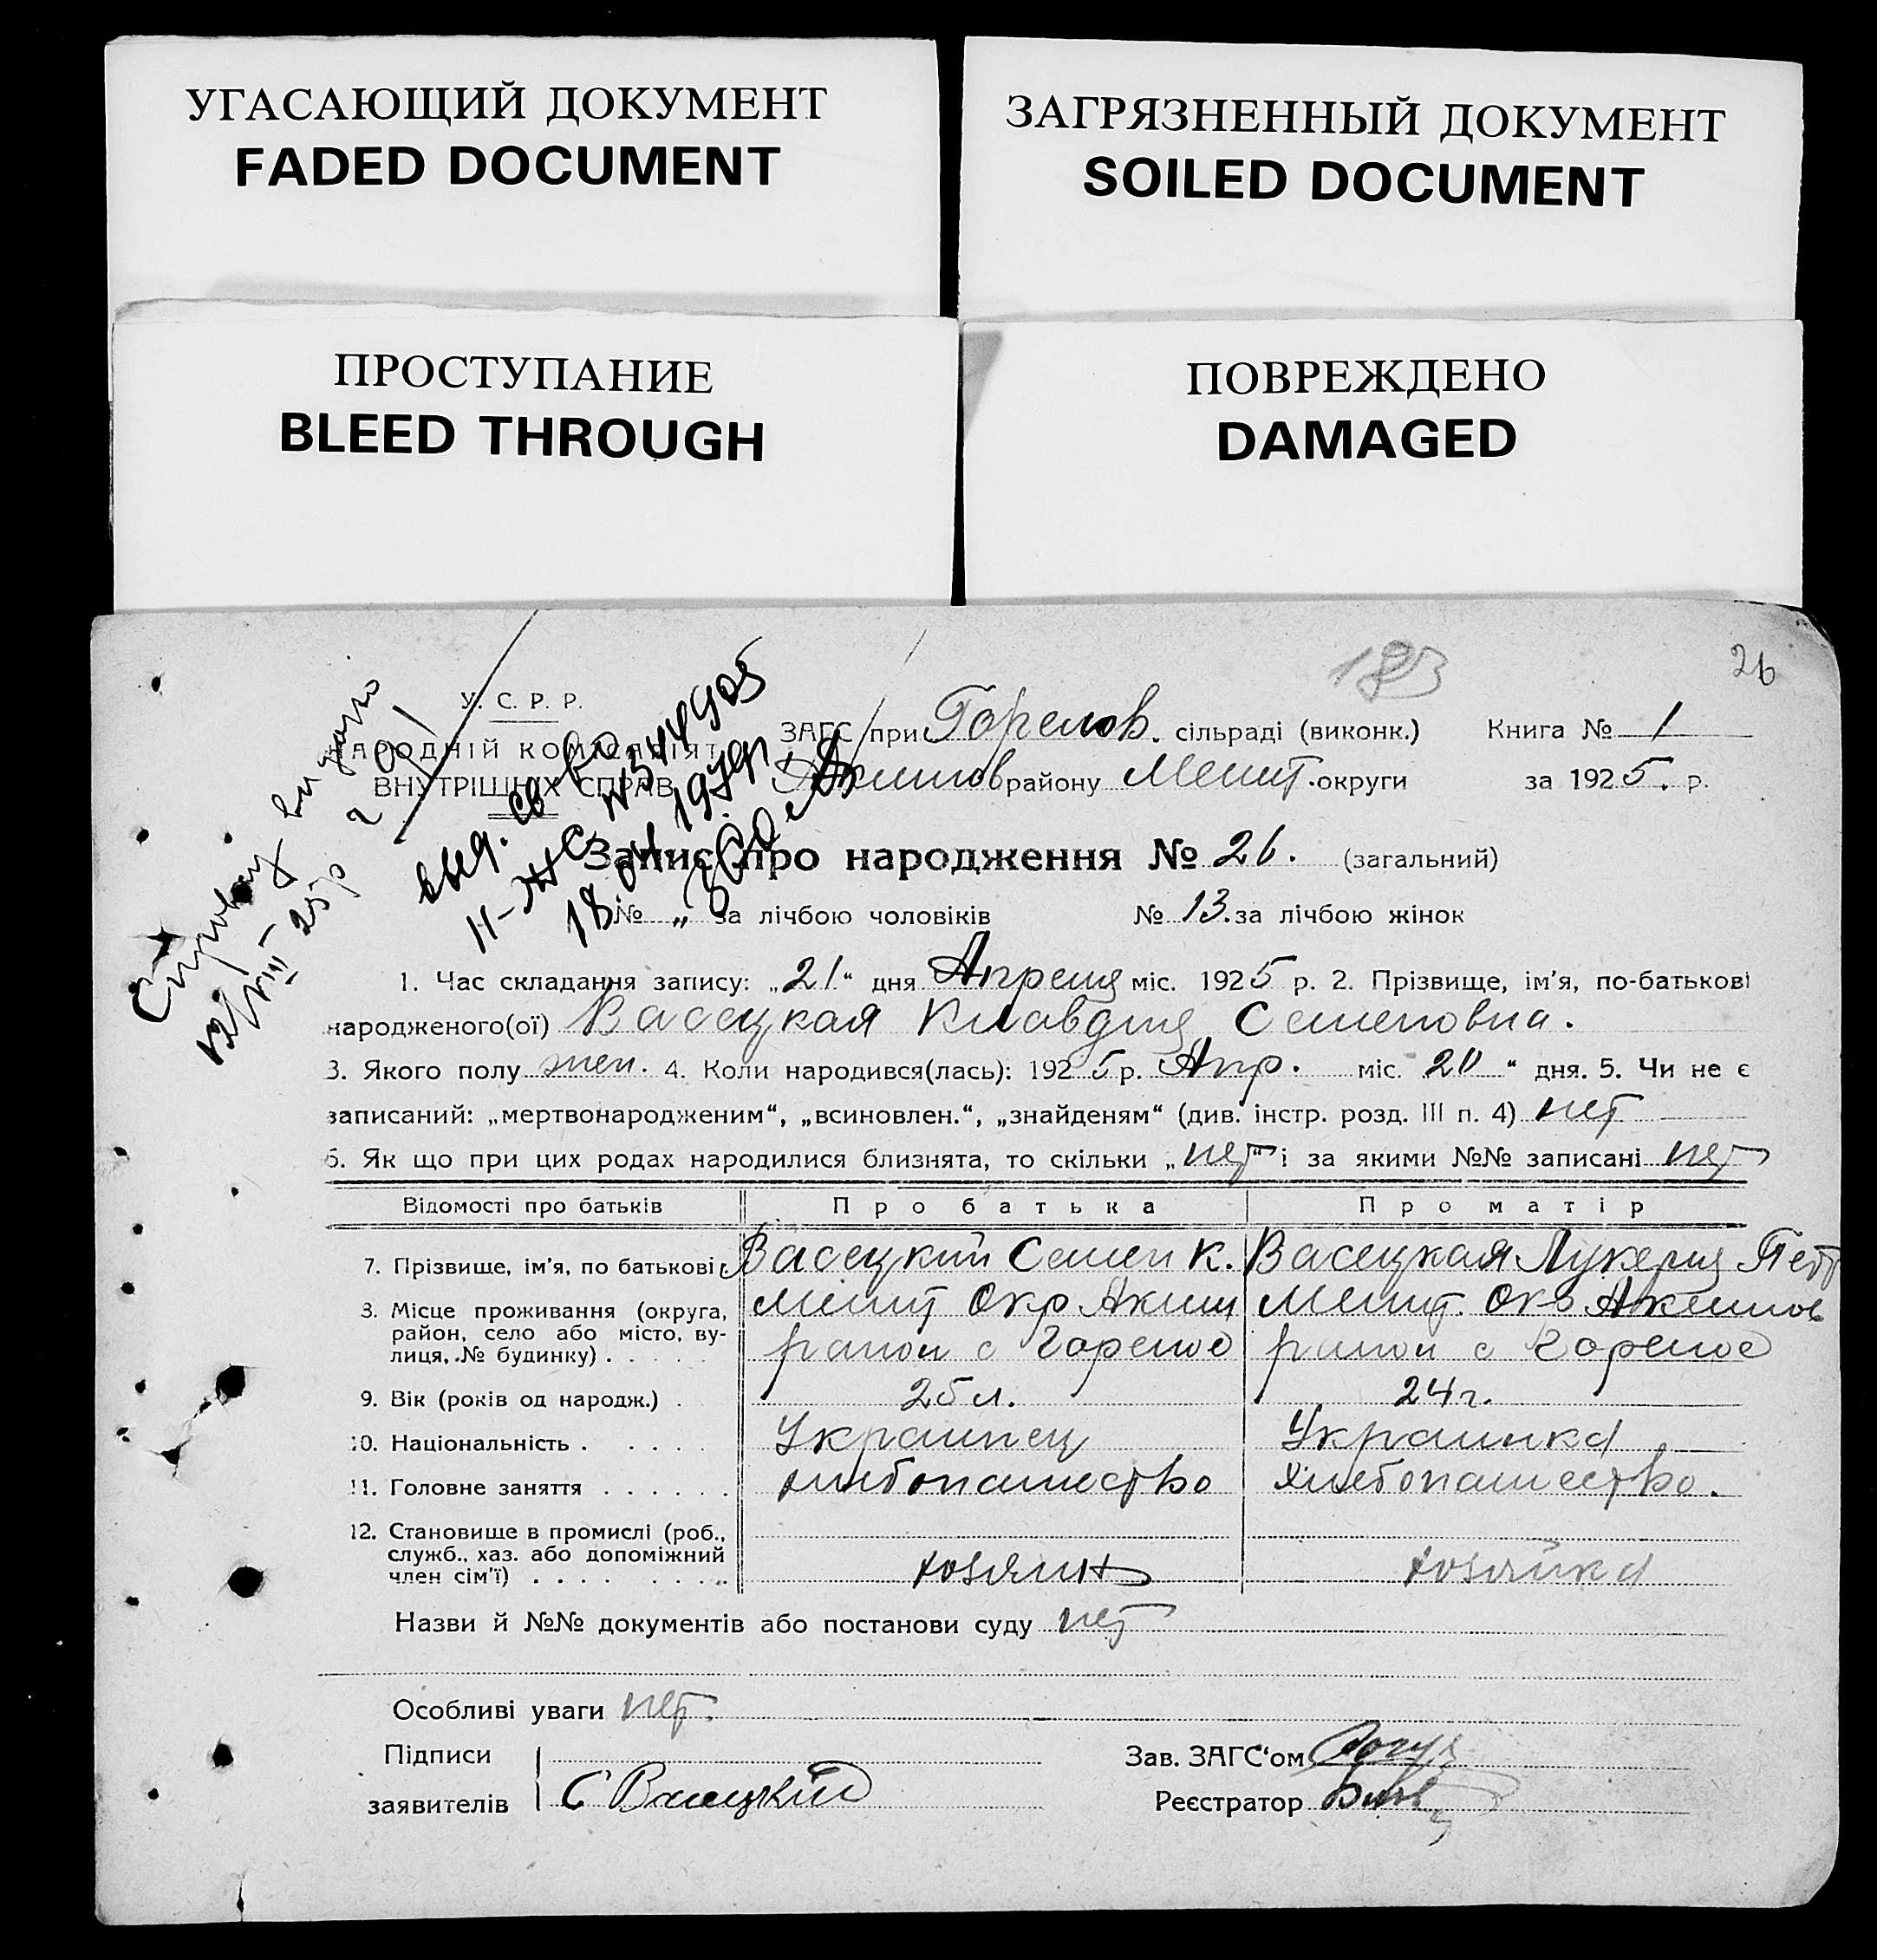 УГАСАЮЩИЙ ДОКУМЕНТ
FADED DOCUMENT
ЗАГРЯЗНЕННЫЙ ДОКУМЕНТ
SOILED DOCUMENT
ПРОСТУПАНИЕ
BLEED THROUGH
ПОВРЕЖДЕНО
DAMAGED
183
26
У. С. Р. Р.
НАРОДНІЙ КОМІСАРІЯТ
ВНУТРІШНІХ СПРАВ
выд. св-во
II-ЖС №344905
ЗАГС при Горелов. сільраді (виконк.) Книга № 1
Акимов району Мелит. округи за 1925. р.
Запис про народження № 26. (загальний)
№ „ за лічбою чоловіків № 13. за лічбою жінок
1. Час складання запису: „21“ дня Апреля міс. 1925 р. 2. Прізвище, ім'я, по-батькові
народженого(ої) Васецкая Клавдия Семеновна.
3. Якого полу жен. 4. Коли народився(лась): 1925 р. Апр. міс. 20 “ дня. 5. Чи не є
записаний: „мертвонародженим“, „всиновлен.“, „знайденям“ (див. інстр. розд. III п. 4) нет
6. Як що при цих родах народилися близнята, то скільки „нет“ і за якими №№ записані нет
Відомості про батьків Про батька Про матір
7. Прізвище, ім'я, по батькові Васецкий Семен К. Васецкая Лукерия Петр
8. Місце проживання (округа, Мелит Окр Аким Мелит. Окр Акимов
район, село або місто, ву-
лиця, № будинку) . район с Горелое район с Горелое
9. Вік (років од народж.) . 25 л. 24 г.
10. Національність . Украинец Украинка
11. Головне заняття . . . . . . хлебопашество хлебопашество.
12. Становище в промислі (роб.,
служб., хаз. або допоміжний
член сім'ї) . . . . хозяин хозяйка
Назви й №№ документів або постанови суду нет
Особливі уваги нет.
Підписи Зав. ЗАГС'ом
заявителів С Васецкий Реєстратор